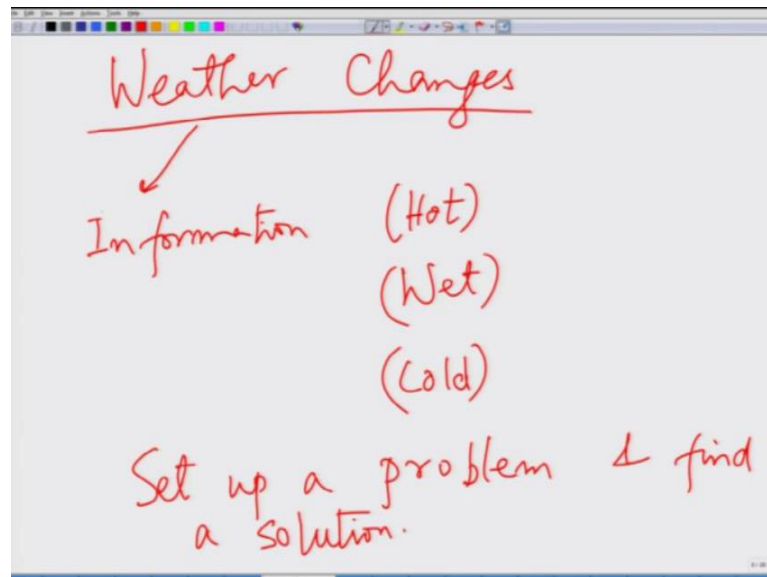 Weather Changes
Information (Hot)
(Wet)
(Cold)
Set up a problem & find
a solution.